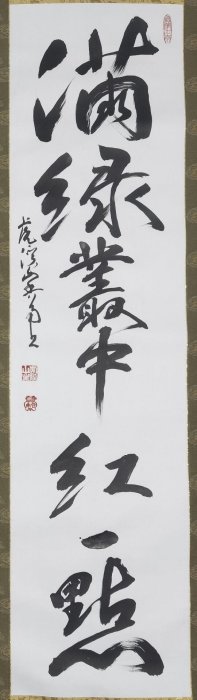 滿綠叢中紅一點